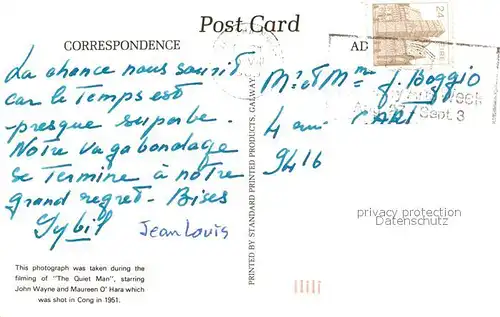 Post Card
CORRESPONDENCE
AD
24
La chance nous sourit
car le Temps est
presque superbe.
Notre vagabondage
se Termine à notre
grand regret. Bises
Sybil Jean Louis
Mr et Mme J. Boggio
4 CART
9416
Week
Sept 3
privacy protection
Datenschutz
PRINTED BY STANDARD PRINTED PRODUCTS, GALWAY
This photograph was taken during the
filming of "The Quiet Man", starring
John Wayne and Maureen O' Hara which
was shot in Cong in 1951.